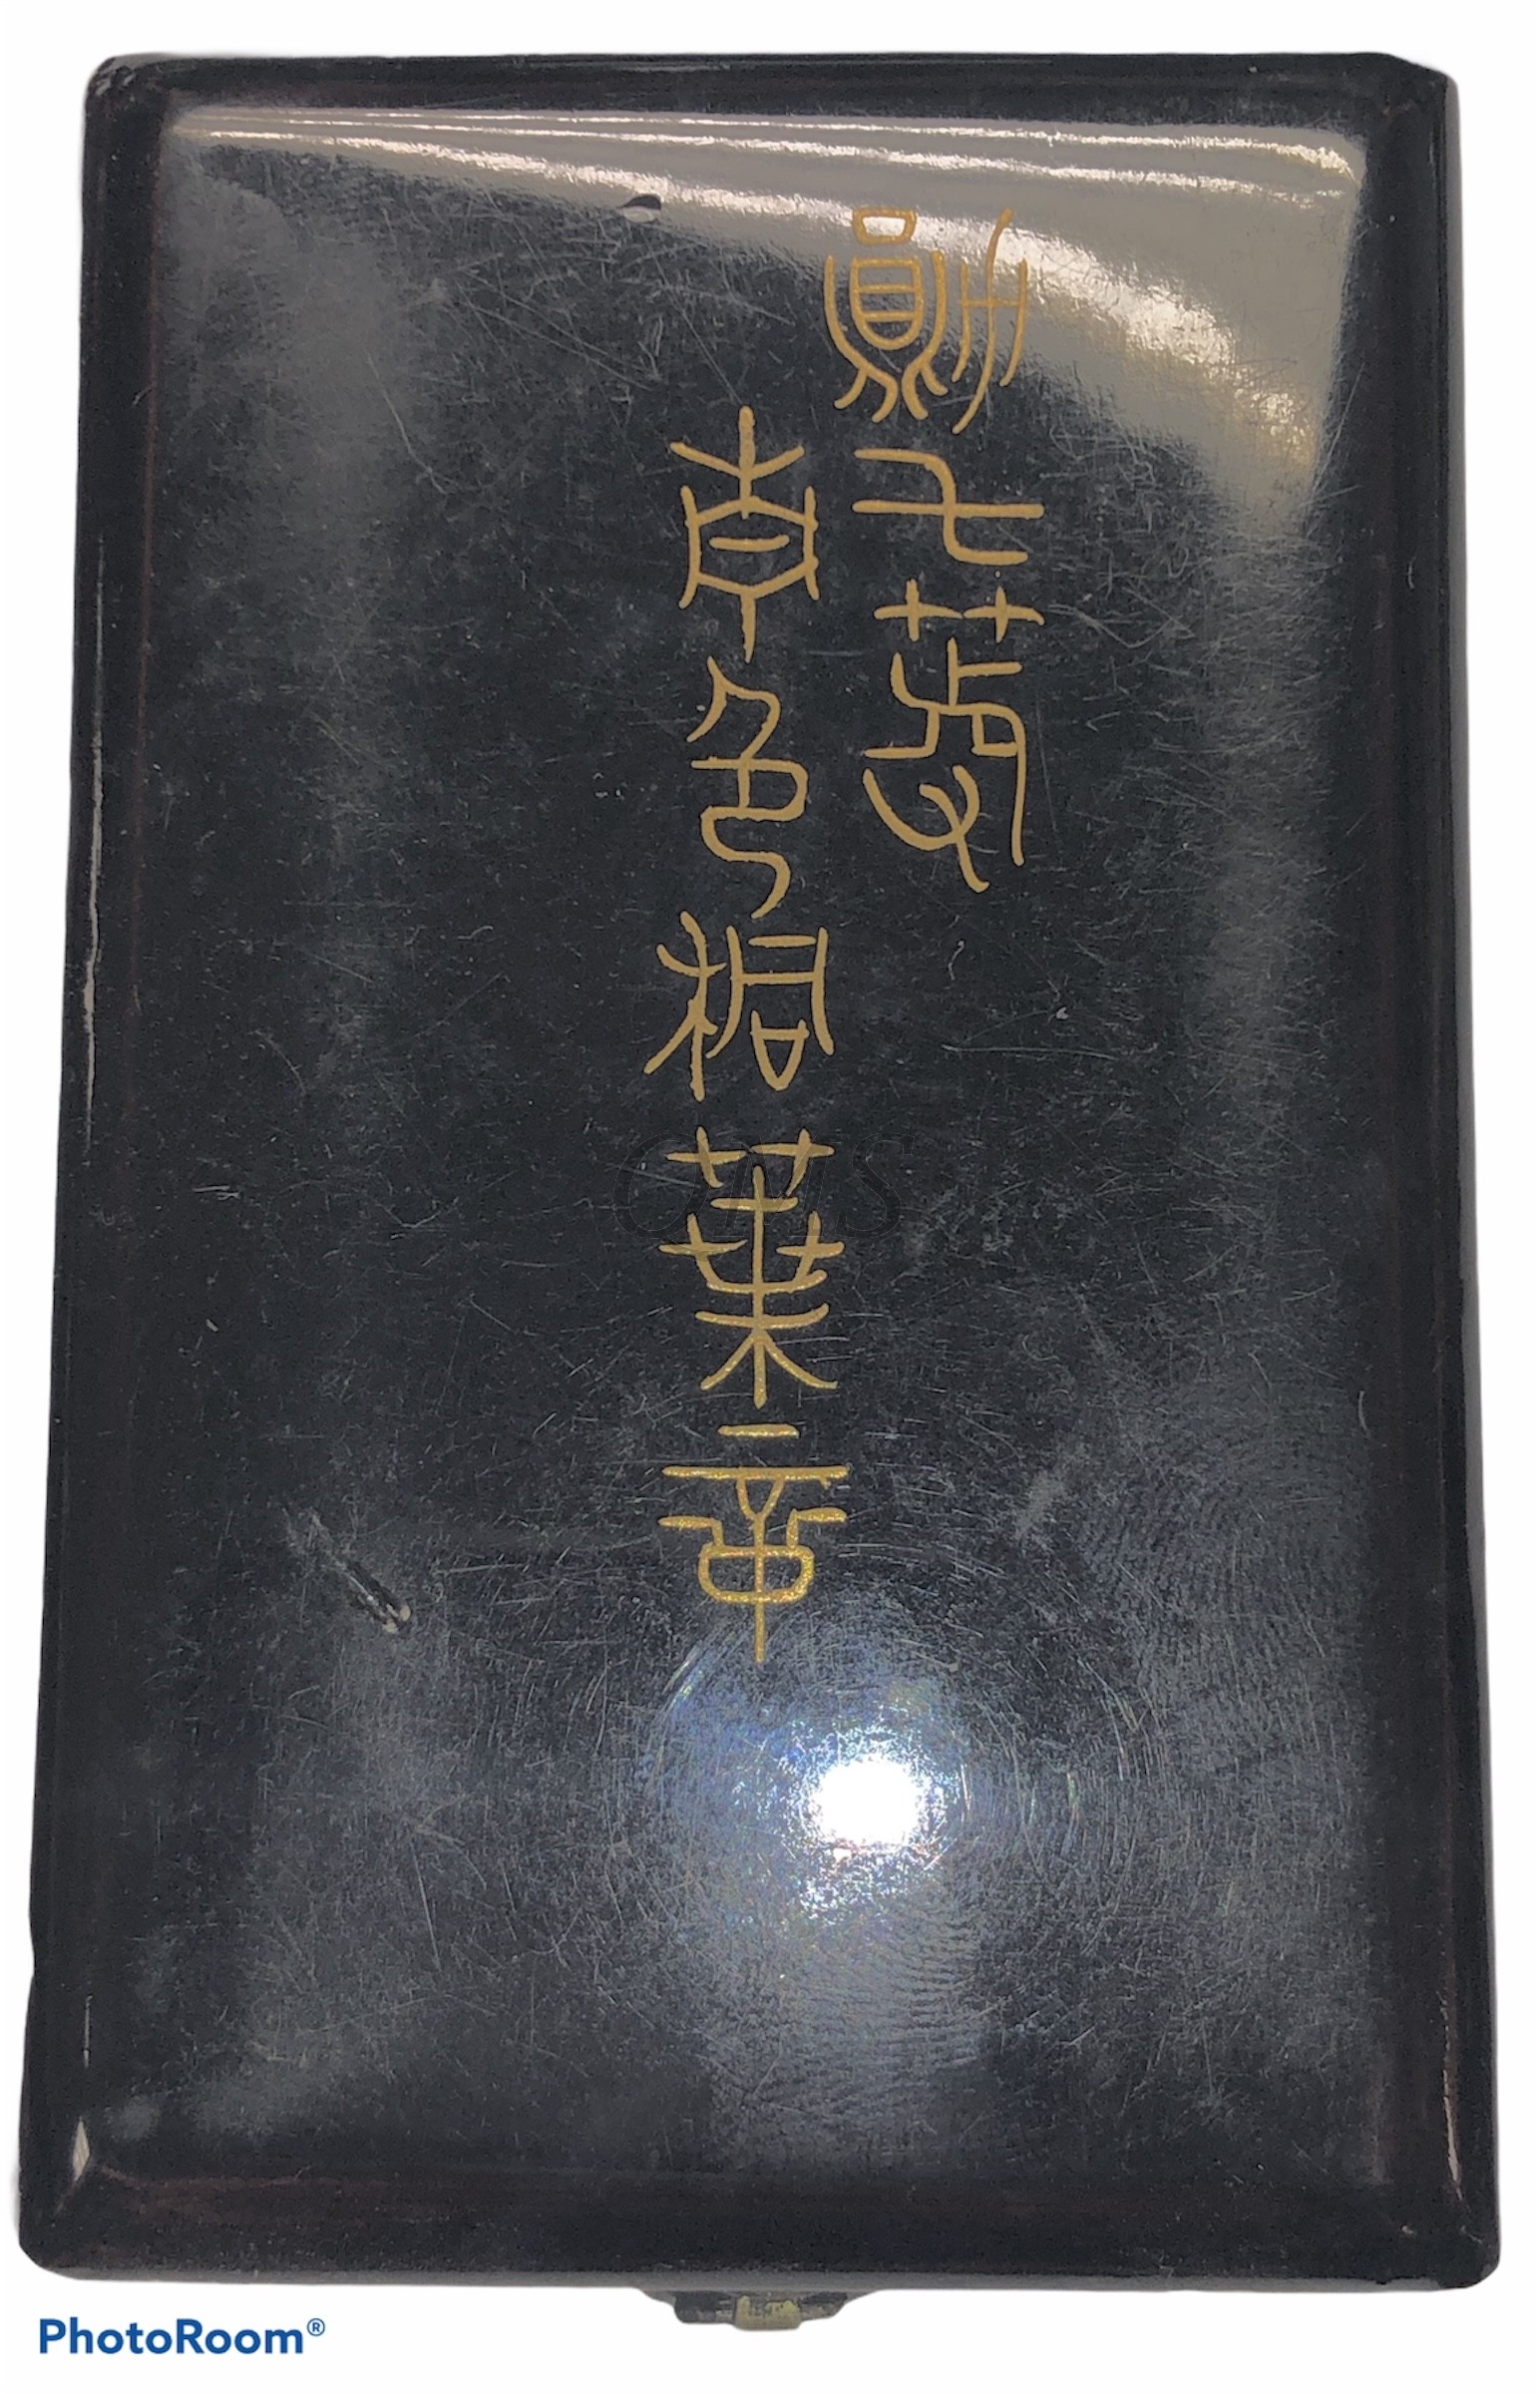 勛七等
青色桐葉章
OMS
PhotoRoom®